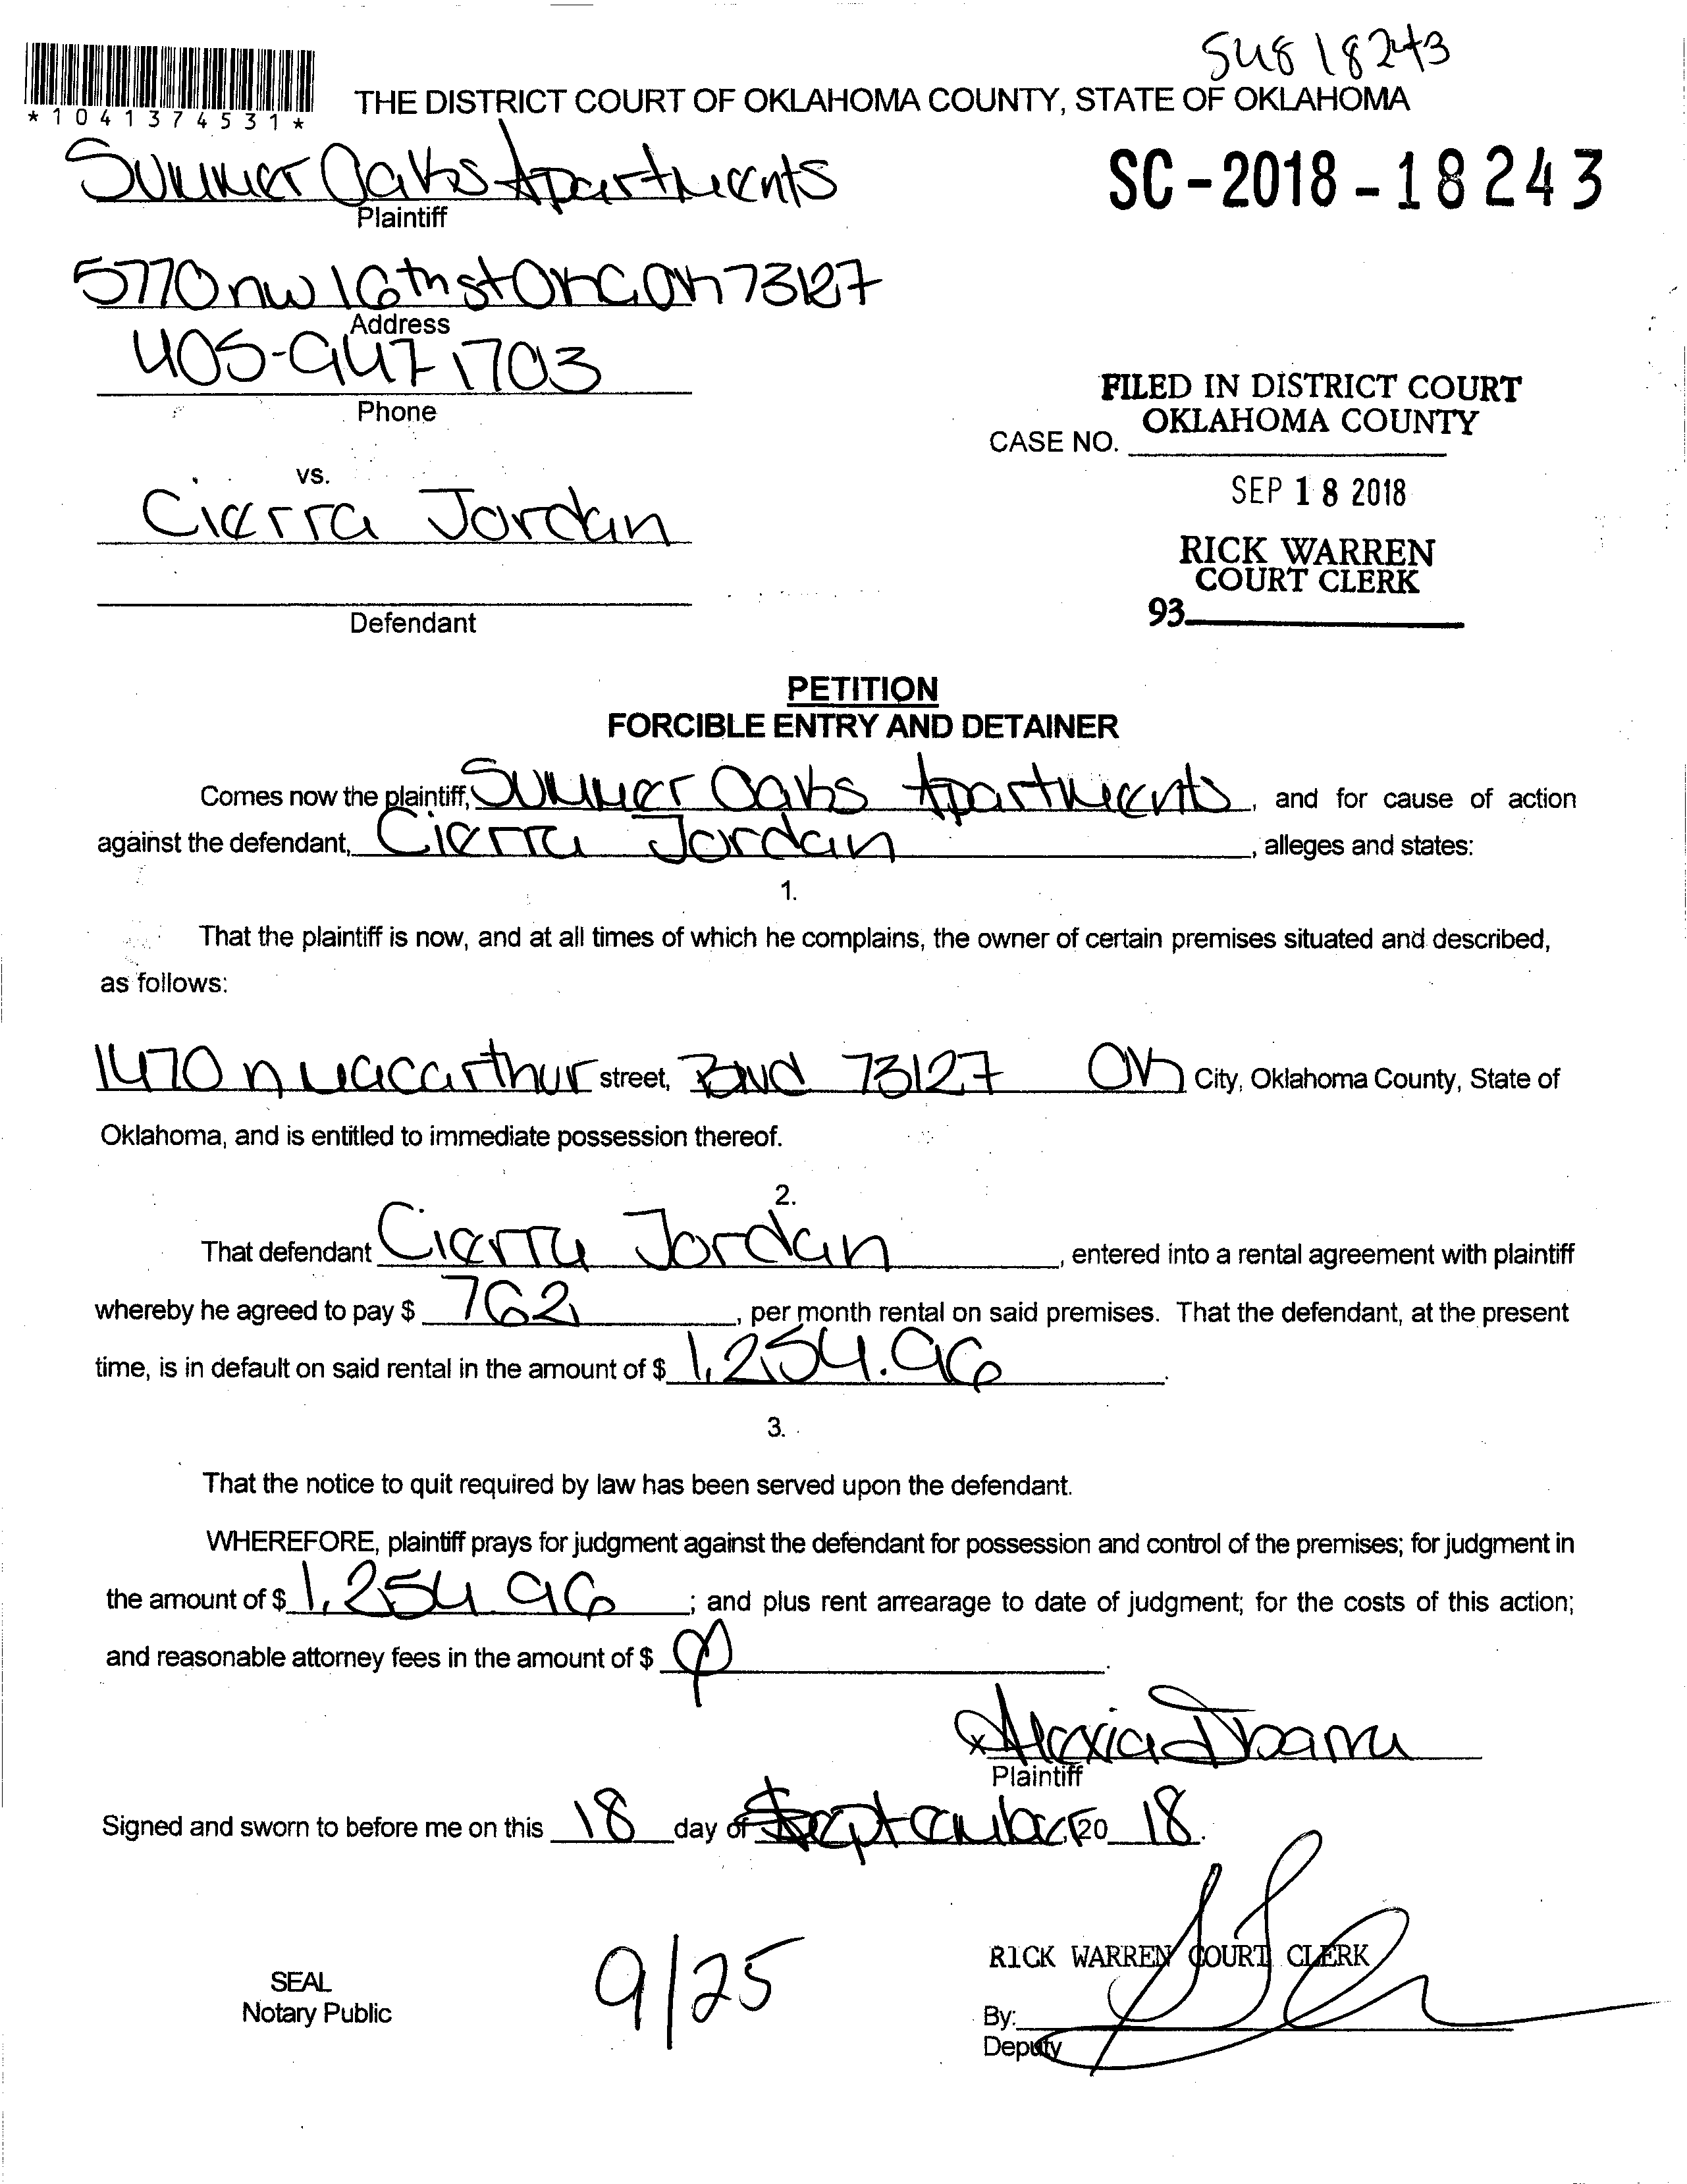 18243
*1041374531*
THE DISTRICT COURT OF OKLAHOMA COUNTY, STATE OF OKLAHOMA
Summer Oaks Apartments
SC-2018-18243
Plaintiff
5770 nw 16th st OKC OK 73127
Address
405-947 1703
Phone
FILED IN DISTRICT COURT
OKLAHOMA COUNTY
CASE NO.
vs.
SEP 18 2018
Cierra Jordan
RICK WARREN
COURT CLERK
93
Defendant
PETITION
FORCIBLE ENTRY AND DETAINER
Comes now the plaintiff, Summer Oaks Apartments, and for cause of action
against the defendant, Cierra Jordan, alleges and states:
1.
That the plaintiff is now, and at all times of which he complains, the owner of certain premises situated and described,
as follows:
1470 n macarthur street, Blvd 73127 OK City, Oklahoma County, State of
Oklahoma, and is entitled to immediate possession thereof.
2.
That defendant Cierra Jordan, entered into a rental agreement with plaintiff
whereby he agreed to pay $ 762, per month rental on said premises. That the defendant, at the present
time, is in default on said rental in the amount of $ 1,254.96.
3.
That the notice to quit required by law has been served upon the defendant.
WHEREFORE, plaintiff prays for judgment against the defendant for possession and control of the premises; for judgment in
the amount of $ 1,254.96; and plus rent arrearage to date of judgment; for the costs of this action;
and reasonable attorney fees in the amount of $
x Alexia
Plaintiff
Signed and sworn to before me on this 18 day of September, 20 18.
RICK WARREN COURT CLERK
SEAL
Notary Public
9/25
By:
Deputy